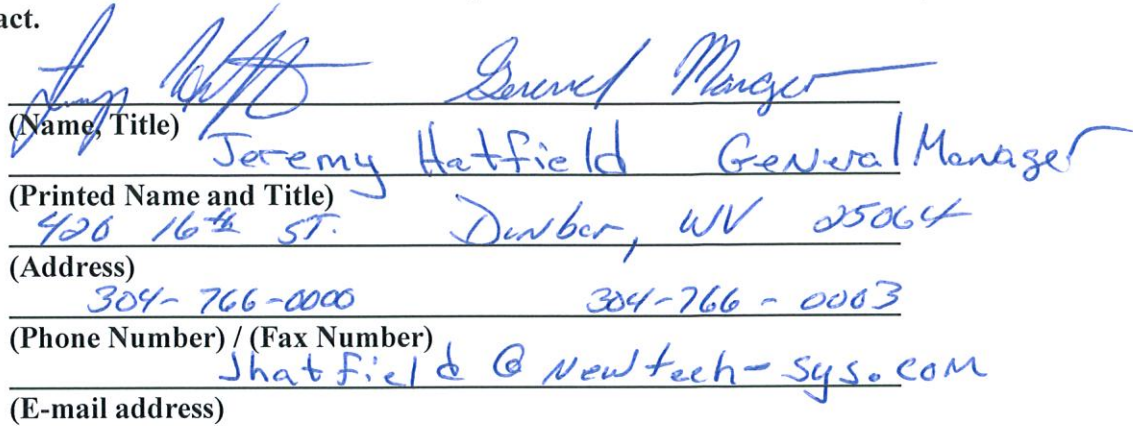 act.
General Manager
(Name, Title)
Jeremy Hatfield General Manager
(Printed Name and Title)
420 16th ST. Dunbar, WV 25064
(Address)
304-766-0000 304-766-0003
(Phone Number) / (Fax Number)
Jhatfield@Newtech-sys.com
(E-mail address)